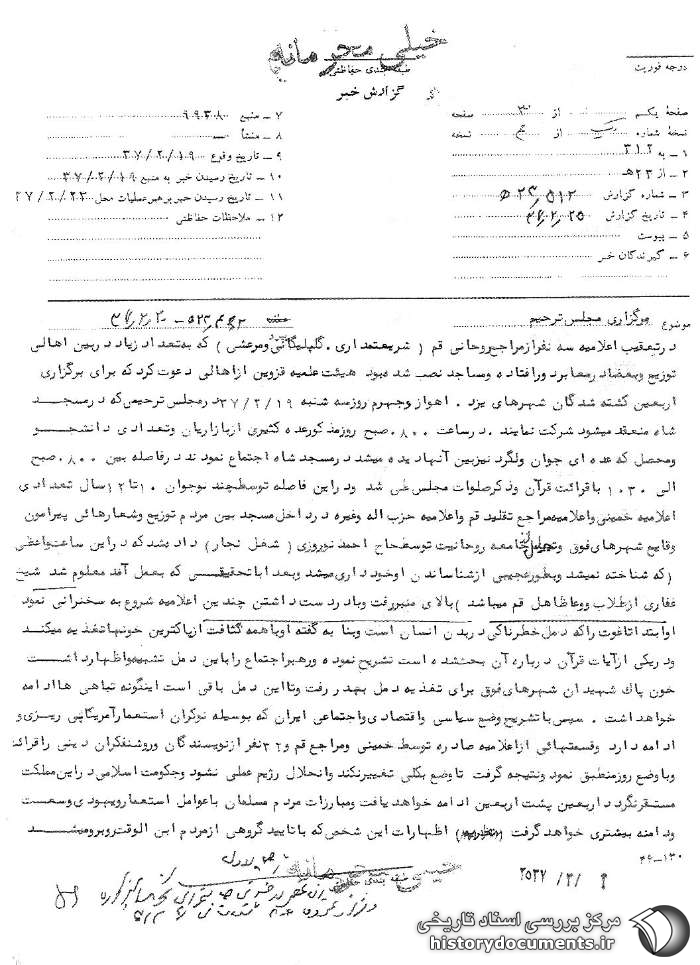 خیلی محرمانه
طبقه بندی حفاظتی
درجه فوریت
گزارش خبر
صفحهٔ یکم از صفحه
نسخهٔ شماره یک از نسخه
۱ ـ به ۳۱۲
۲ ـ از ۲۳هـ
۳ ـ شماره گزارش
۴ ـ تاریخ گزارش ۳۷/۲/۲۵
۵ ـ پیوست
۶ ـ گیرندگان خبر
۷ ـ منبع ۹۹۳۸۰
۸ ـ منشأ
۹ ـ تاریخ وقوع ۳۷/۲/۱۹
۱۰ ـ تاریخ رسیدن خبر به منبع ۳۷/۲/۱۹
۱۱ ـ تاریخ رسیدن خبر برهبر عملیات محل ۳۷/۲/۲۳
۱۲ ـ ملاحظات حفاظتی
موضوع برگزاری مجلس ترحیم
درتعقیب اعلامیه سه نفرازمراجع روحانی قم ( شریعتمداری . گلپایگانی ومرعشی ) که بتعداد زیاد دربین اهالی
توزیع وبعضاد رمعابر ورافتاده ومساجد نصب شده بود هیئت علمیه قزوین ازاهالی دعوت کرد که برای برگزاری
اربعین کشته شدگان شهرهای یزد . اهواز وجهرم روزسه شنبه ۳۷/۲/۱۹ درمجلس ترحیمی که درمسجد
شاه منعقد میشود شرکت نمایند . درساعت ۸۰۰ صبح روزمذکورعده کثیری ازبازاریان وتعدادی دانشجو
ومحصل که عده ای جوان ولگرد نیزبین آنهادیده میشد درمسجد شاه اجتماع نمودند درفاصله بین ۸۰۰ صبح
الی ۱۰۳۰ باقرائت قرآن وذکرصلوات مجلس طی شد ودراین فاصله توسط چند نوجوان ۱۰تا۱۲سال تعدادی
اعلامیه خمینی واعلامیه مراجع تقلید قم واعلامیه حزب اله وغیره درداخل مسجد بین مردم توزیع وشعارهائی پیرامون
وقایع شهرهای فوق وتجلیل ازجامعه روحانیت توسط حاج احمد نوروزی ( شغل نجار ) داد شد که دراین ساعت واعظی
( که شناخته نمیشد وبطورعجیبی ازشناساندن اوخود داری میشد وبعداباتحقیقی که بعمل آمد معلوم شد شیخ
غفاری ازطلاب ووعاظ اهل قم میباشد ) بالای منبررفت وبادردست داشتن چندین اعلامیه شروع به سخنرانی نمود
اوابتداطاغوت راکه دمل خطرناکی دربدن انسان است وبنا به گفته اوباهمه کثافت ازپاکترین خونهاتغذیه میکند
ودریکی ازآیات قرآن درباره آن بحث شده است تشریح نموده ورهبراجتماع راباین دمل تشبیه واظهارداشت
خون پاک شهیدان شهرهای فوق برای تغذیه دمل بهدر رفت وتااین دمل باقی است اینگونه تباهی هاادامه
خواهد داشت . سپس باتشریح وضع سیاسی واقتصادی واجتماعی ایران که بوسیله نوکران استعمارآمریکایی ریزی و
ادامه دارد وقسمتهائی ازاعلامیه صادره توسط خمینی ومراجع قم و۳۲نفر ازنویسندگان وروشنفکران دینی راقرائت
وباوضع روزمنطبق نمود ونتیجه گرفت تاوضع بکلی تغییرنکند وانحلال رژیم عملی نشود وحکومت اسلامی دراین مملکت
مستقرنگردد اربعین پشت اربعین ادامه خواهد یافت ومبارزات مردم مسلمان باعوامل استعمارویهودی وسعت
ودامنه بیشتری خواهد گرفت اظهارات این شخص که باتایید گروهی ازمردم ابن الوقت روبرومیشد
۴۶-۱۳۰
خیلی محرمانه
طبقه بندی حفاظتی
۲۵۳۷
مرکز بررسی اسناد تاریخی
historydocuments.ir